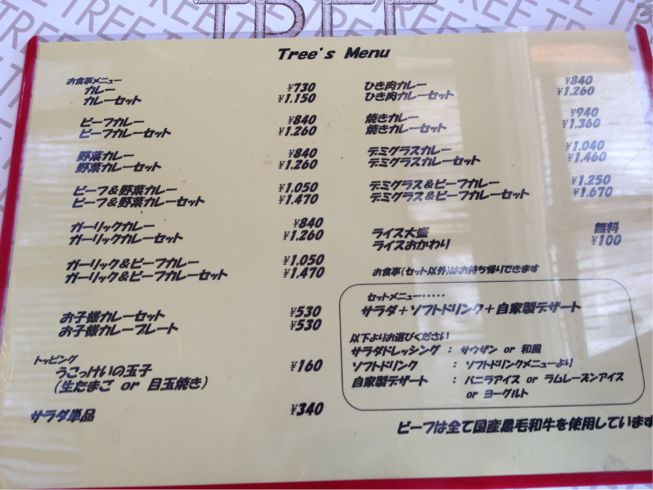 TREE
Tree's Menu
お食事メニュー
カレー ¥730
カレーセット ¥1.150
ビーフカレー ¥840
ビーフカレーセット ¥1.260
野菜カレー ¥840
野菜カレーセット ¥1.260
ビーフ&野菜カレー ¥1.050
ビーフ&野菜カレーセット ¥1.470
ガーリックカレー ¥840
ガーリックカレーセット ¥1.260
ガーリック&ビーフカレー ¥1.050
ガーリック&ビーフカレーセット ¥1.470
お子様カレーセット ¥530
お子様カレープレート ¥530
トッピング
うこっけいの玉子 ¥160
(生たまご or 目玉焼き)
サラダ単品 ¥340
ひき肉カレー ¥840
ひき肉カレーセット ¥1.260
焼きカレー ¥940
焼きカレーセット ¥1.360
デミグラスカレー ¥1.040
デミグラスカレーセット ¥1.460
デミグラス&ビーフカレー ¥1.250
デミグラス&ビーフカレーセット ¥1.670
ライス大盛 無料
ライスおかわり ¥100
お食事(セット以外)はお持ち帰りできます
セットメニュー・・・・・
サラダ+ソフトドリンク+自家製デザート
以下よりお選びください
サラダドレッシング : サウザン or 和風
ソフトドリンク : ソフトドリンクメニューより
自家製デザート : バニラアイス or ラムレーズンアイス
or ヨーグルト
ビーフは全て国産黒毛和牛を使用しています